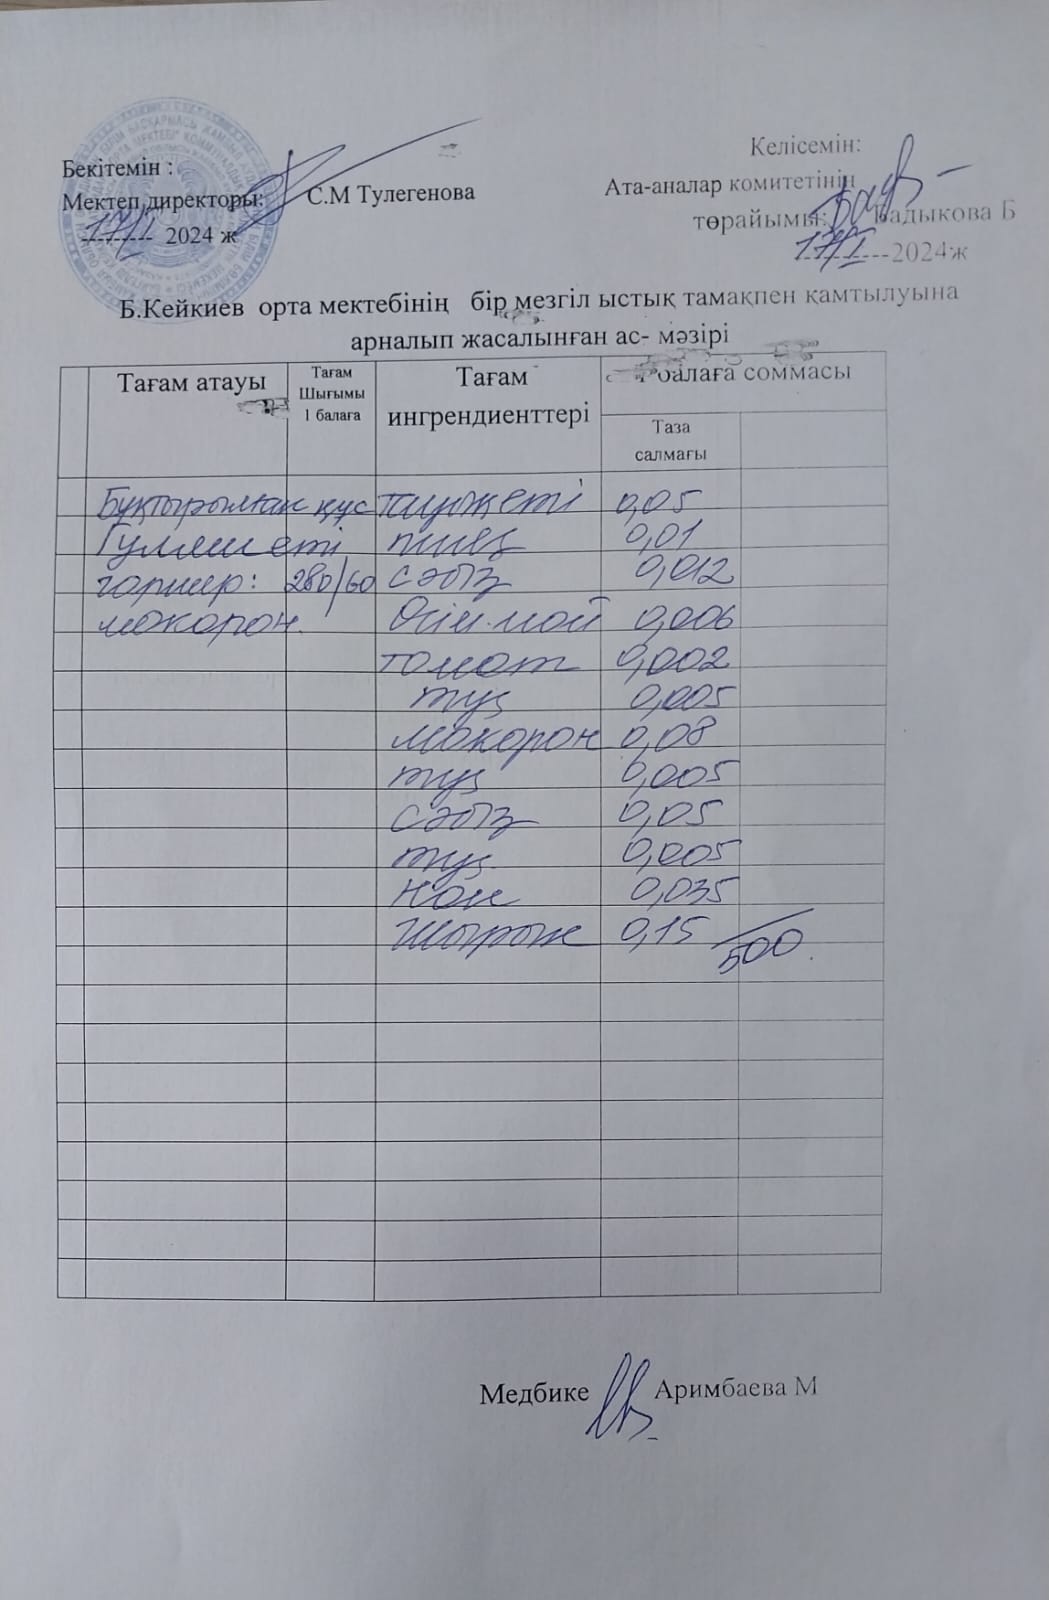 Бекітемін :
Мектеп директоры: С.М Тулегенова
17/I 2024 ж
Келісемін:
Ата-аналар комитетінің
төрайымы: Бадыкова Б
17/I 2024ж
Б.Кейкиев орта мектебінің бір мезгіл ыстық тамақпен қамтылуына
арналып жасалынған ас- мәзірі
Тағам атауы
Тағам
Шығымы
1 балаға
Тағам
ингрендиенттері
балаға соммасы
Таза
салмағы
Бұқтырылған құс 0,05
Гуляш еті пияз 0,01
гарнир: 280/60 сәбіз 0,012
мокорон. Өсім.май 0,006
томат 0,002
тұз 0,005
мокорон 0,08
тұз 0,005
сәбіз 0,05
тұз 0,005
нан 0,035
Шырын 0,15 500
Медбике Аримбаева М